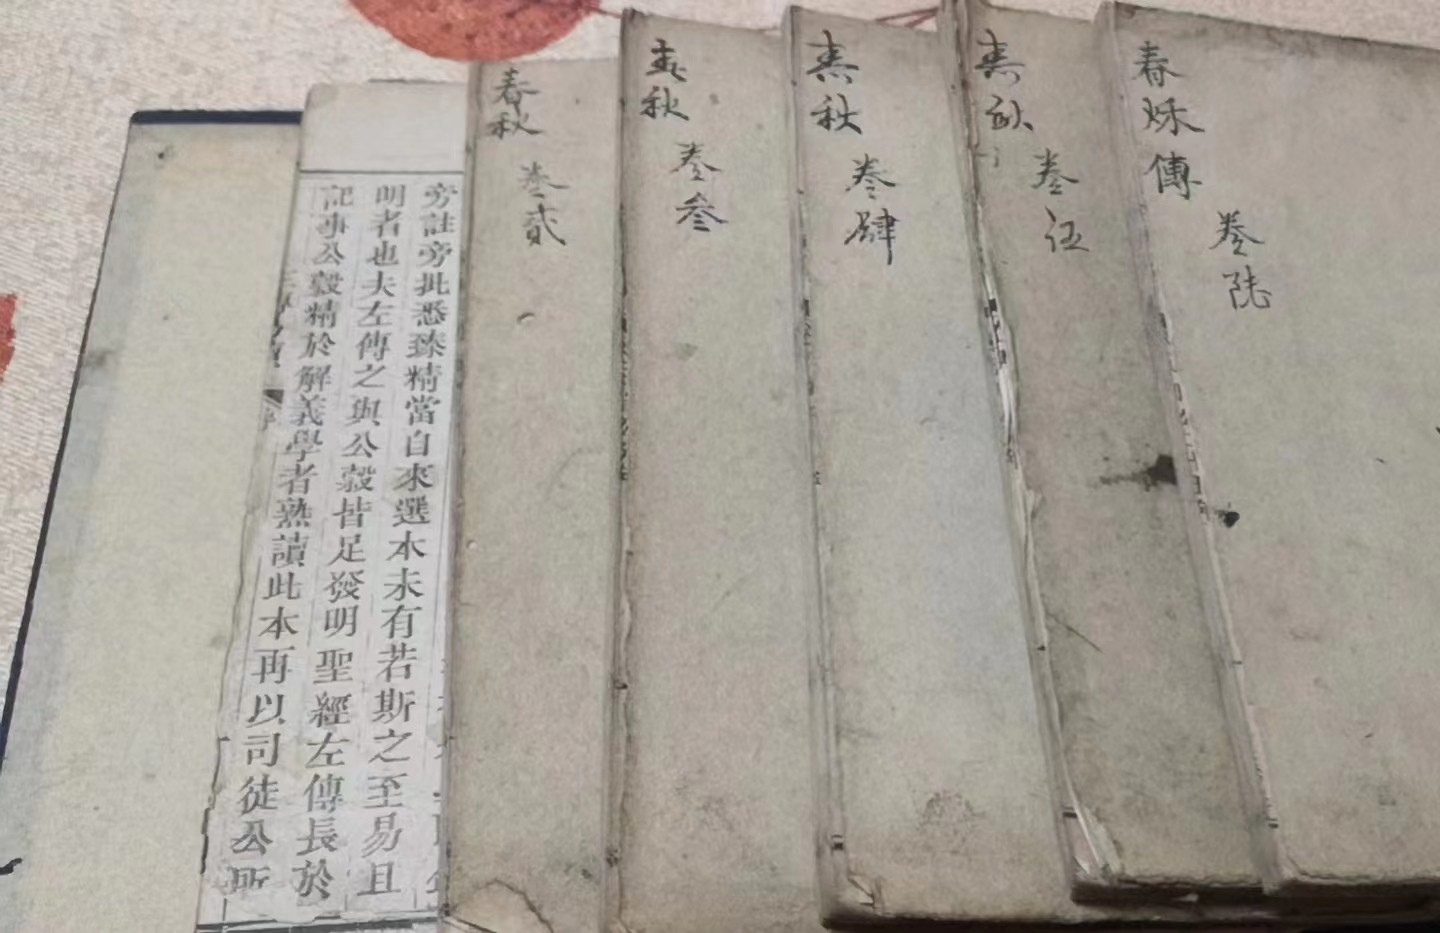 旁註旁批悉臻精當自來選本未有若斯之至易且
明者也夫左傳之與公穀皆足發明聖經左傳長於
記事公穀精於解義學者熟讀此本再以司徒公所
春秋
卷貳
春秋
卷叁
春秋
卷肆
春秋
卷伍
春秌傳
卷陸